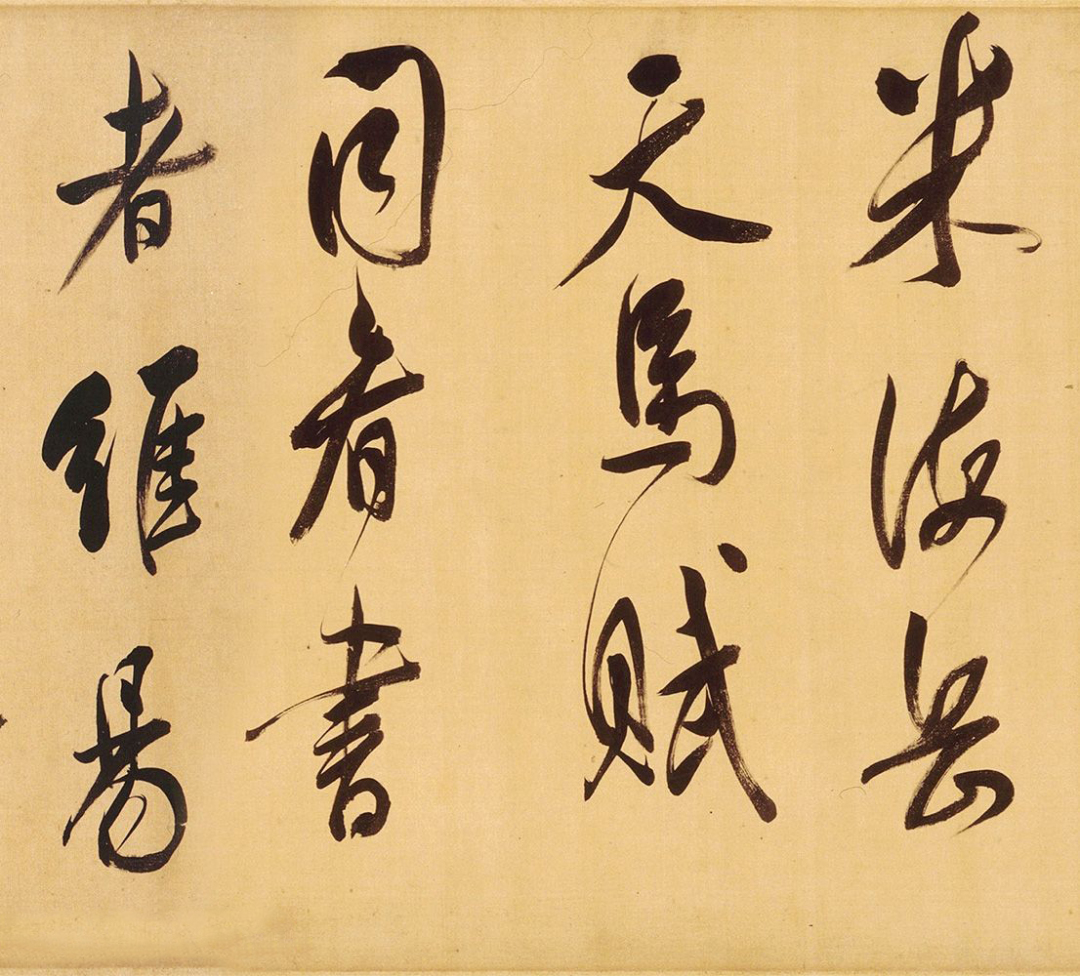 米海岳
天馬賦
同看書
者維易